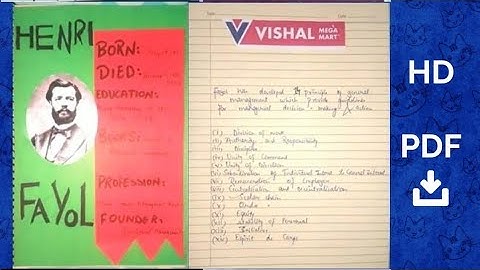 HENRI
FAYOL
BORN:
DIED:
EDUCATION:
BOOKS:
PROFESSION:
FOUNDER:
VISHAL
MEGA
MART
has developed 14 principle of general
management which provide guidelines
for managerial decision - making & action
(i) Division of work
(ii) Authority and Responsibility
(iii) Discipline
(iv) Unity of Command
(v) Unity of Direction
(vi) Subordination of Individual Interest to General Interest
(vii) Remuneration of Employee
(viii) Centralisation and Decentralisation
(ix) Scalar chain
(x) Order
(xi) Equity
(xii) Stability of Personnel
(xiii) Initiative
(xiv) Espirit de Corps
HD
PDF